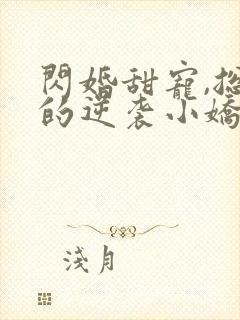 閃婚甜寵,總
的逆袭小嬌
淺月